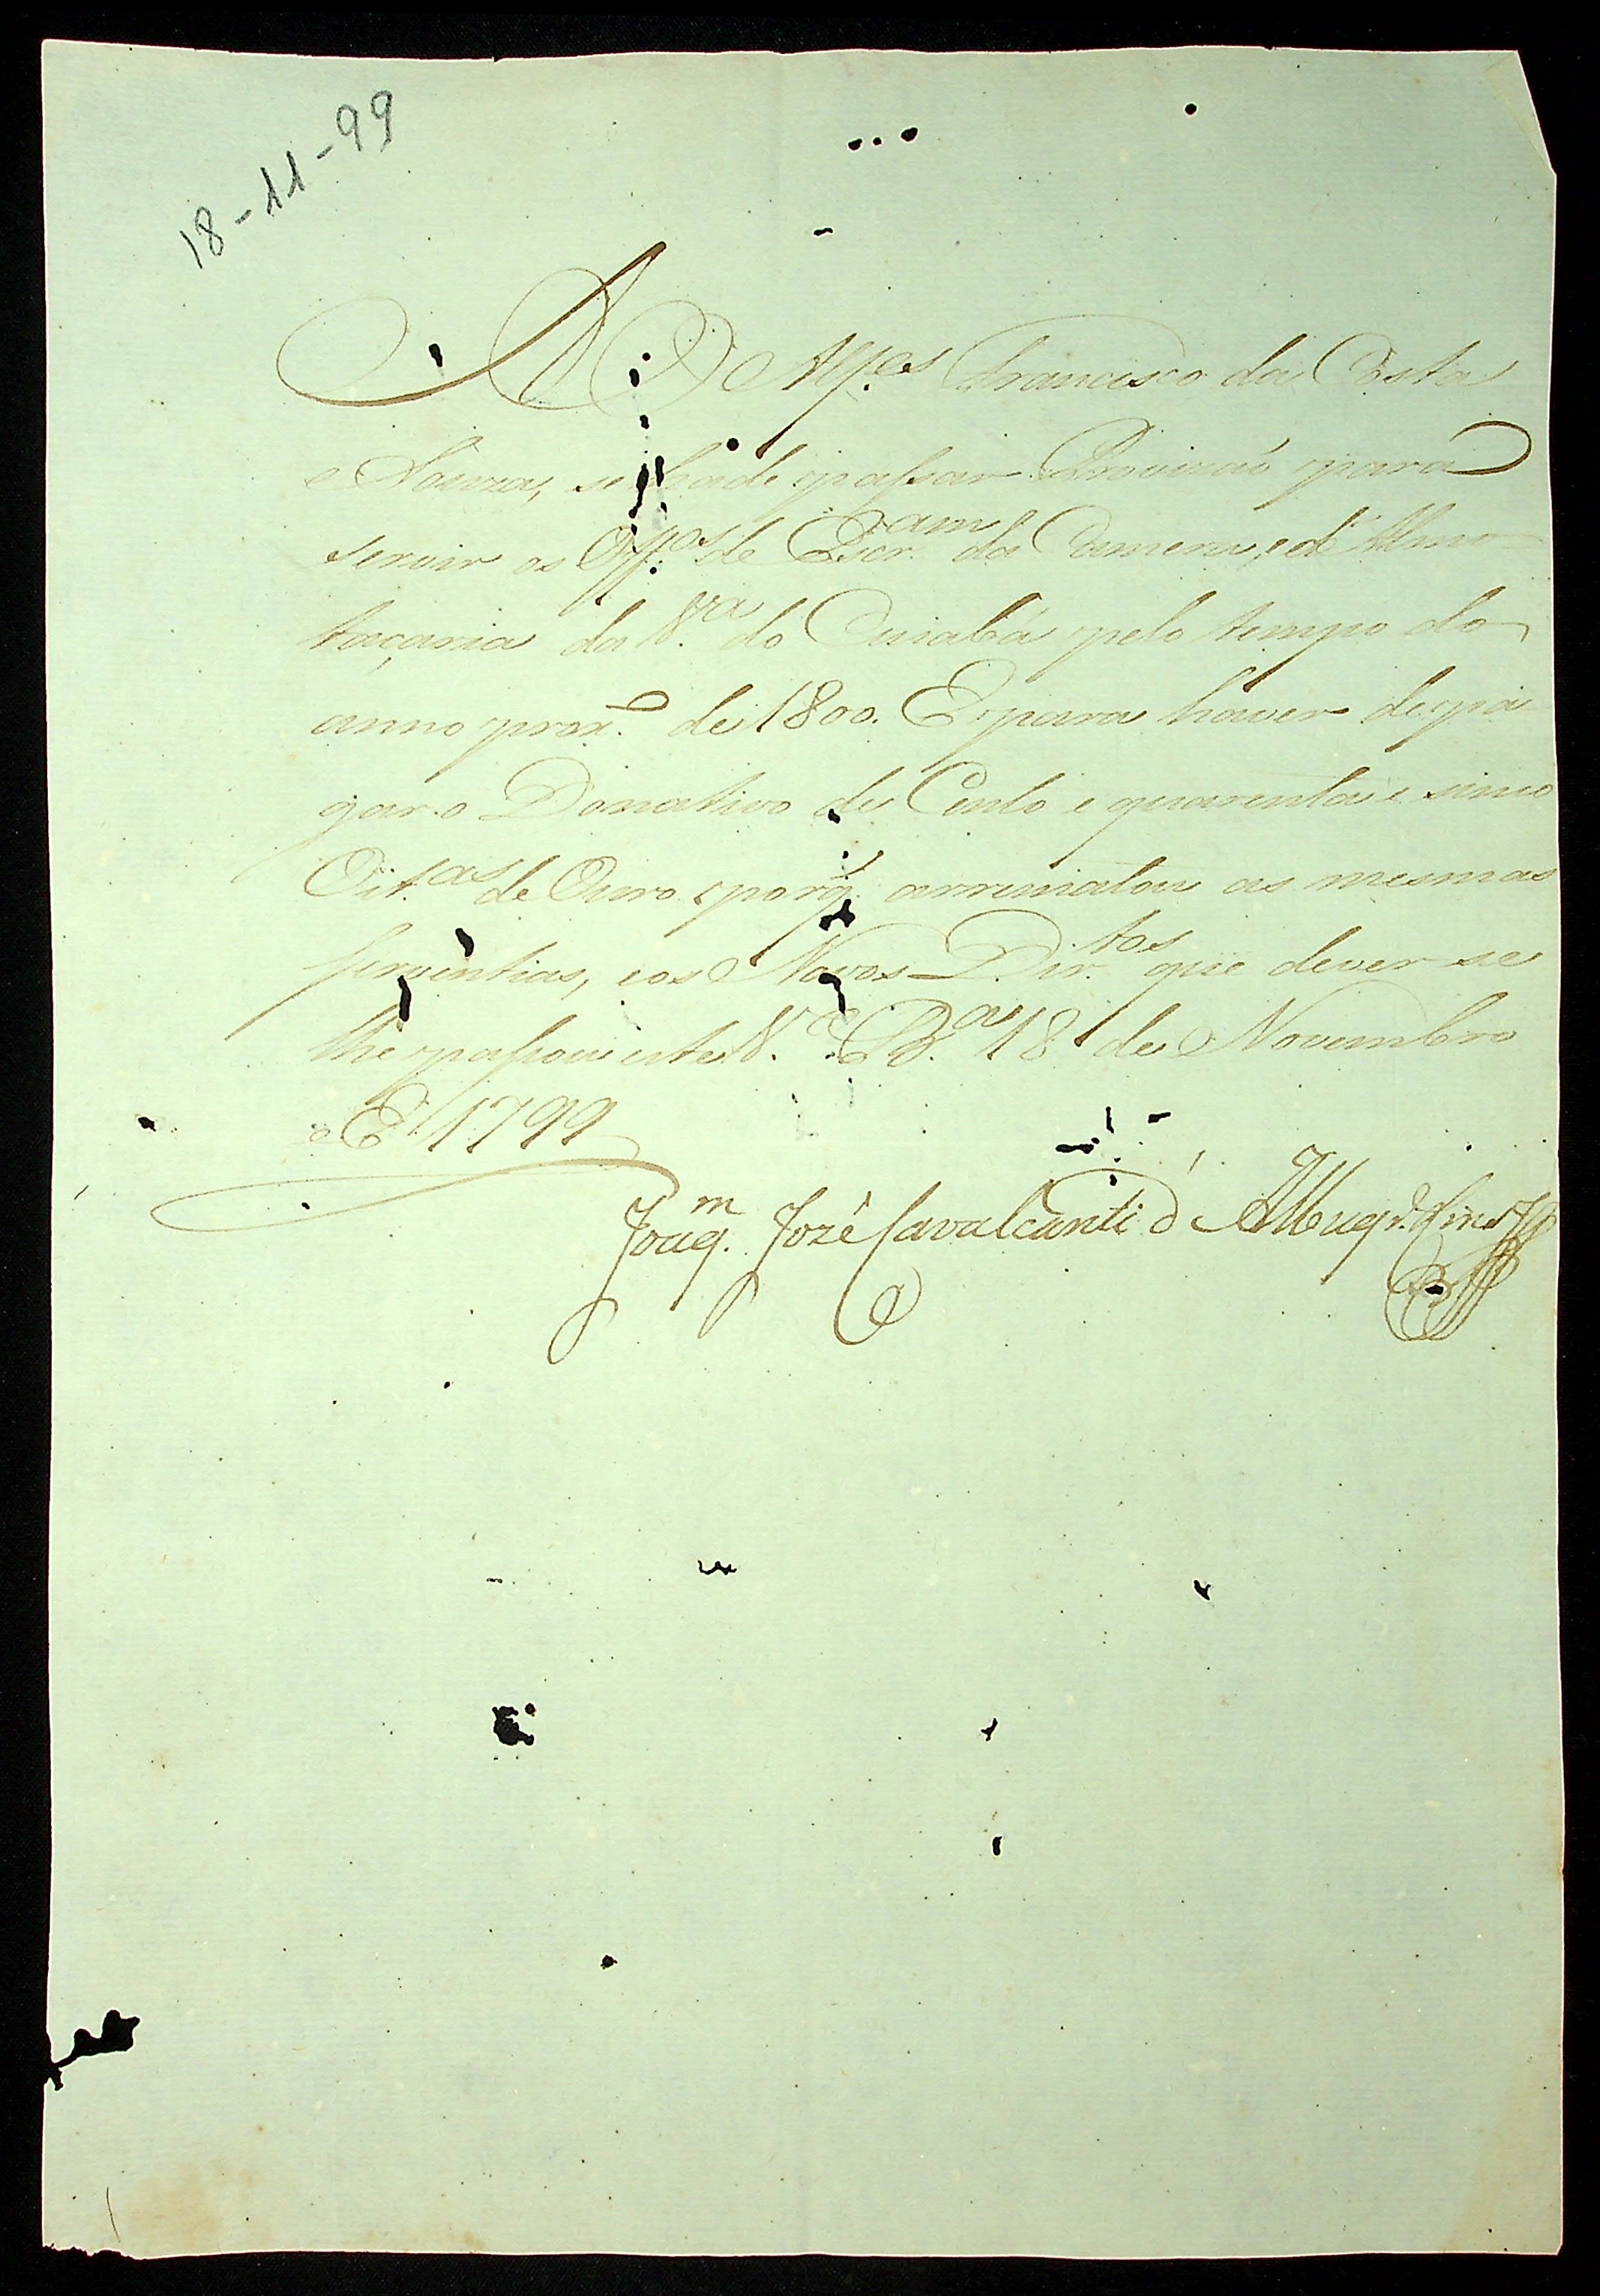 18-11-99
Ao Alf.es Francisco da Costa
e Souza, se hade passar Provizaó para
servir os Off.os de Escr.am da Camera, e d'Almo
taçaria da V.ra do Cuiabá pelo tempo do
anno prox.o de 1800. E para haver de pa
gar o Donativo de Cento e quarenta e sinco
Oit.as de Ouro porq̃ arrematou as mesmas
serventias, e os Novos Dir.tos que dever se
lhe passou este V.a B.a 18 de Novembro
de 1799
Joaq.m José Cavalcanti d'Albuq.e Lins